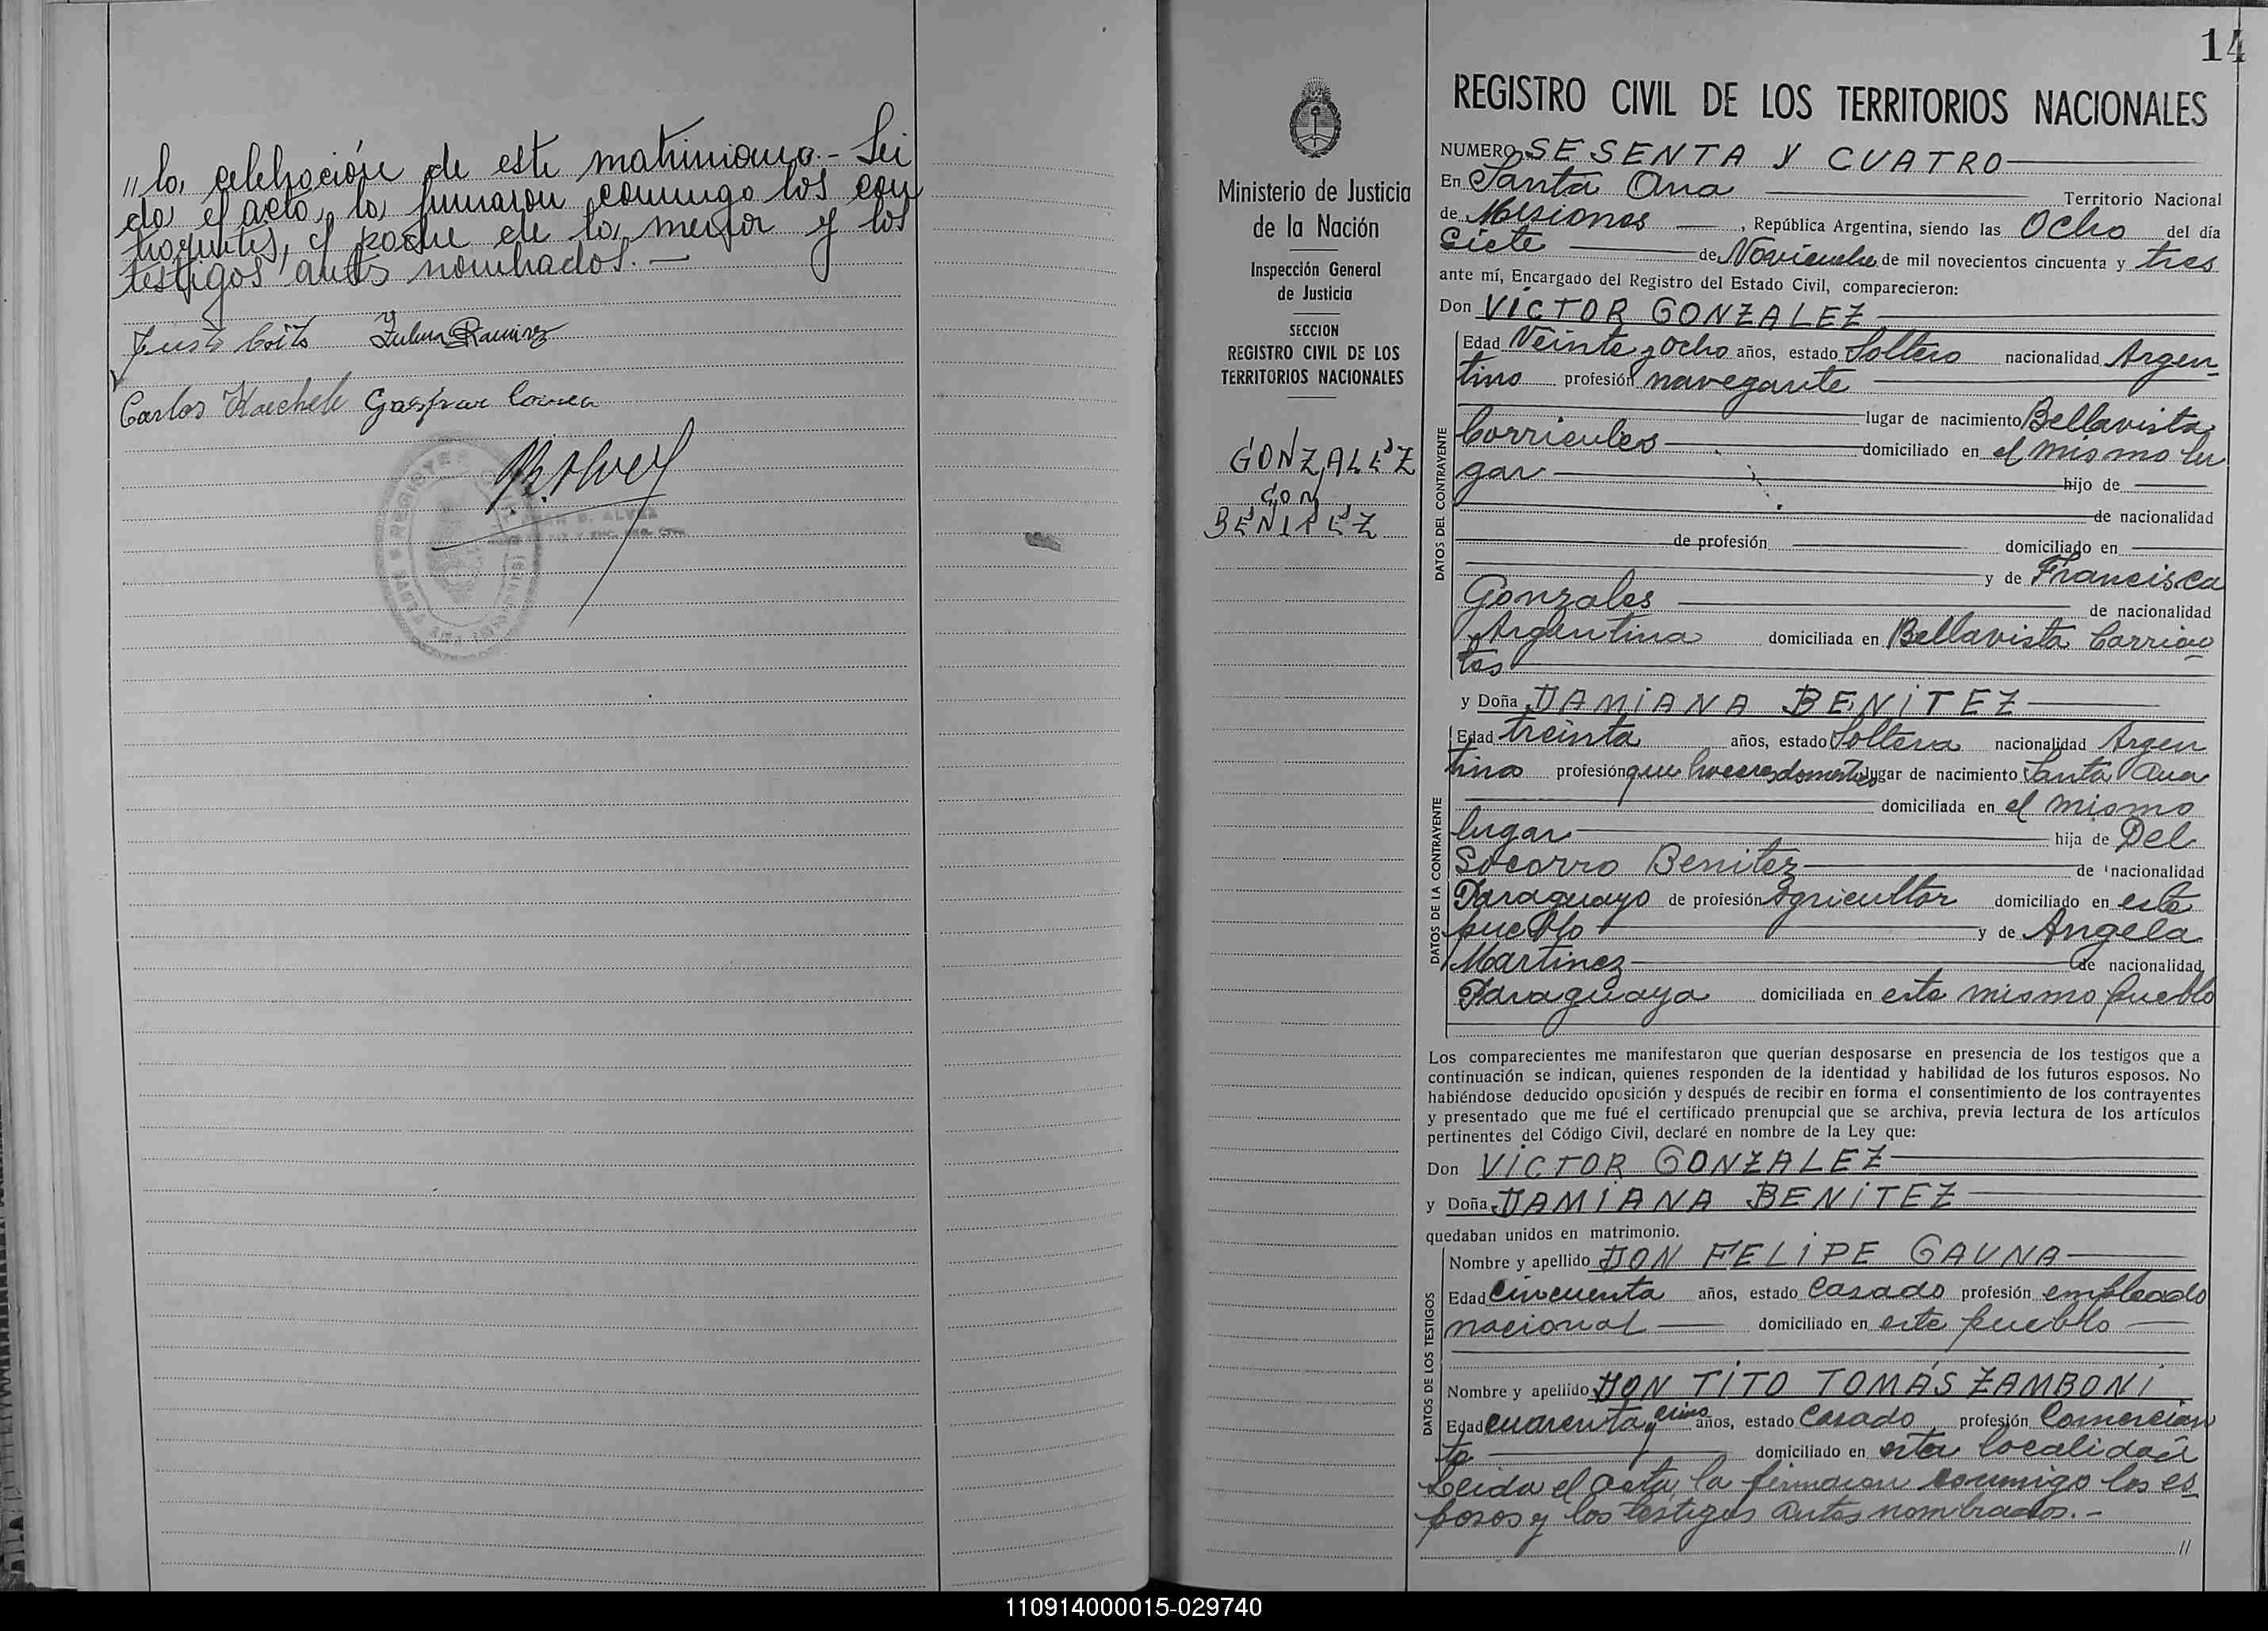 " la celebración de este matrimonio.- Lei
da el acta, la firmaron conmigo los con
trayentes, el padre de la menor y los
testigos antes nombrados.—
Justo Ramirez
Carlos Gaspar Correa
14
REGISTRO CIVIL DE LOS TERRITORIOS NACIONALES
Ministerio de Justicia
de la Nación
Inspección General
de Justicia
SECCION
REGISTRO CIVIL DE LOS
TERRITORIOS NACIONALES
GONZALEZ
CON
BENITEZ
NUMERO SESENTA Y CUATRO
En Santa Ana Territorio Nacional
de Misiones, República Argentina, siendo las Ocho del día
Siete de Noviembre de mil novecientos cincuenta y tres
ante mí, Encargado del Registro del Estado Civil, comparecieron:
Don VÍCTOR GONZALEZ
DATOS DEL CONTRAYENTE
Edad Veinte y Ocho años, estado Soltero nacionalidad Argen-
tino profesión navegante
lugar de nacimiento Bellavista
Corrientes domiciliado en el mismo lu
gar hijo de
de nacionalidad
de profesión domiciliado en
y de Francisca
Gonzales de nacionalidad
Argentina domiciliada en Bellavista Corrien
tes
y Doña DAMIANA BENITEZ
DATOS DE LA CONTRAYENTE
Edad treinta años, estado Soltera nacionalidad Argen
tina profesión que haceres domesticos lugar de nacimiento Santa Ana
domiciliada en el mismo
lugar hija de Del
Socorro Benitez de nacionalidad
Paraguayo de profesión agricultor domiciliado en este
pueblo y de Angela
Martinez de nacionalidad
Paraguaya domiciliada en este mismo pueblo
Los comparecientes me manifestaron que querían desposarse en presencia de los testigos que a
continuación se indican, quienes responden de la identidad y habilidad de los futuros esposos. No
habiéndose deducido oposición y después de recibir en forma el consentimiento de los contrayentes
y presentado que me fué el certificado prenupcial que se archiva, previa lectura de los artículos
pertinentes del Código Civil, declaré en nombre de la Ley que:
Don VICTOR GONZALEZ
y Doña DAMIANA BENITEZ
quedaban unidos en matrimonio.
DATOS DE LOS TESTIGOS
Nombre y apellido DON FELIPE GAUNA
Edad Cincuenta años, estado Casado profesión empleado
nacional domiciliado en este pueblo
Nombre y apellido DON TITO TOMÁS ZAMBONI
Edad cuarenta y cinco años, estado Casado profesión Comercian
te domiciliado en esta localidad
Leida el acta la firmaron conmigo los es
posos y los testigos antes nombrados.-
"
110914000015-029740